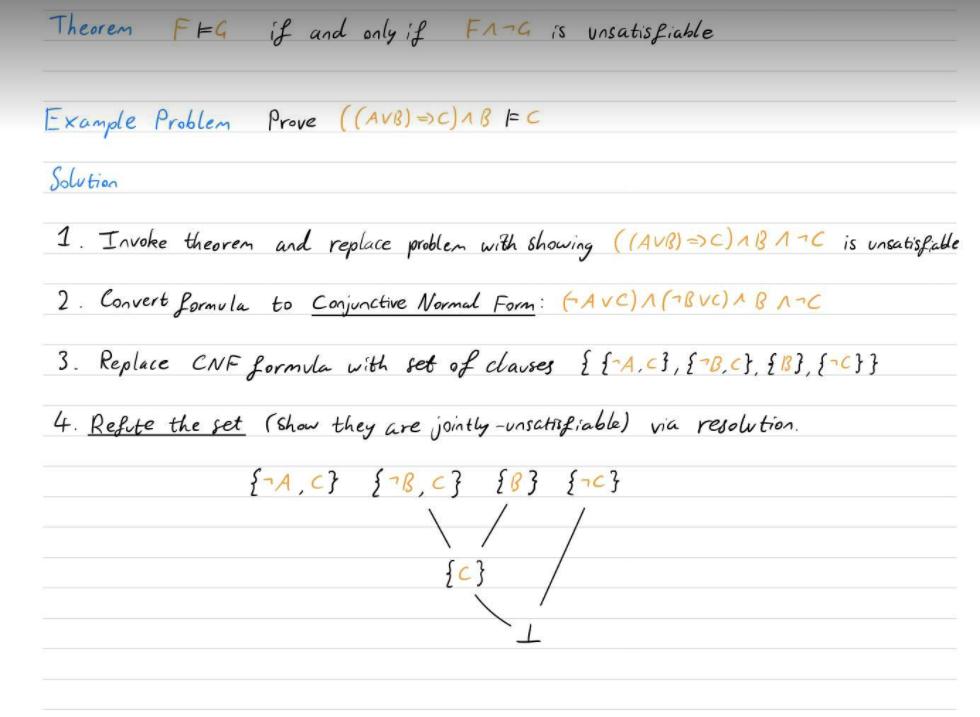 Theorem F ⊨ G if and only if F ∧ ¬G is unsatisfiable
Example Problem Prove ((A∨B) ⇒ C) ∧ B ⊨ C
Solution
1. Invoke theorem and replace problem with showing ((A∨B) ⇒ C) ∧ B ∧ ¬C is unsatisfiable
2. Convert formula to Conjunctive Normal Form: (¬A ∨ C) ∧ (¬B ∨ C) ∧ B ∧ ¬C
3. Replace CNF formula with set of clauses { {¬A, C}, {¬B, C}, {B}, {¬C} }
4. Refute the set (show they are jointly-unsatisfiable) via resolution.
{¬A, C} {¬B, C} {B} {¬C}
{C}
⊥